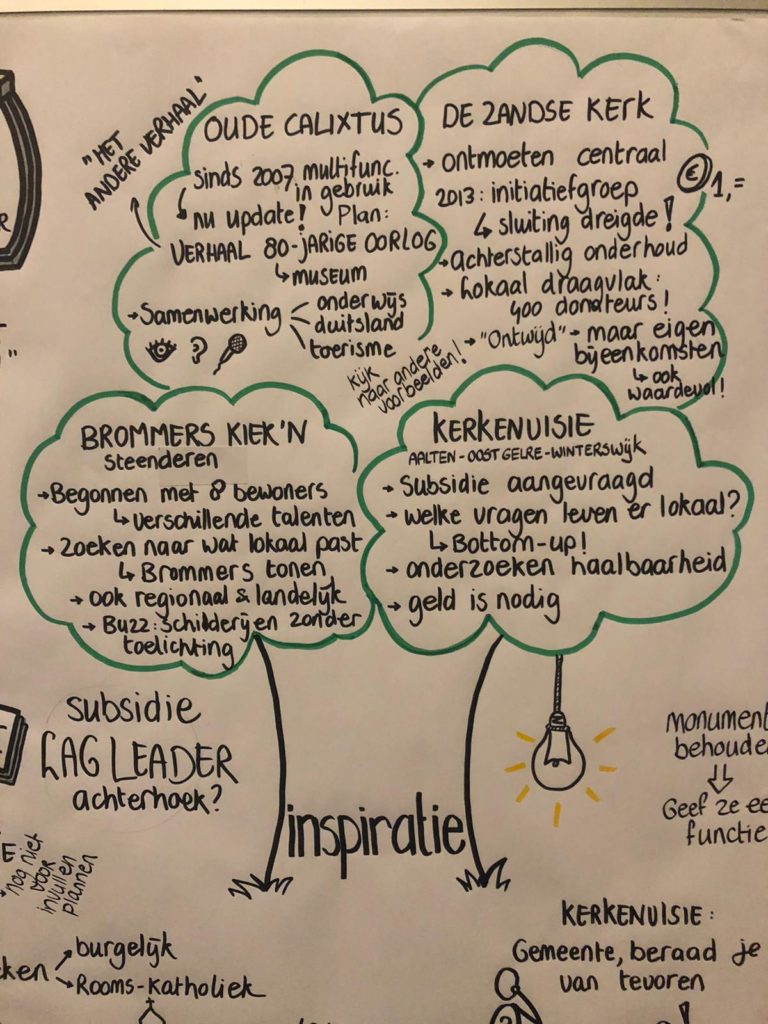 "HET
ANDERE VERHAAL"
OUDE CALIXTUS
sinds 2007 multifunc.
in gebruik
nu update! Plan:
VERHAAL 80-JARIGE OORLOG
↳ museum
→ Samenwerking
onderwijs
duitsland
toerisme
?
DE ZANDSE KERK
→ ontmoeten centraal
€ 1,=
2013: initiatiefgroep
↳ sluiting dreigde!
→ achterstallig onderhoud
→ Lokaal draagvlak:
400 donateurs!
→ "Ontwijd" → maar eigen
bijeenkomsten
↳ ook
waardevol!
kijk
naar andere
voorbeelden!
BROMMERS KIEK'N
Steenderen
→ Begonnen met 8 bewoners
↳ verschillende talenten
→ Zoeken naar wat lokaal past
↳ Brommers tonen
→ ook regionaal & landelijk
→ Buzz: schilderijen zonder
toelichting
KERKENUISIE
AALTEN-OOST GELRE-WINTERSWIJK
→ Subsidie aangevraagd
→ welke vragen leven er lokaal?
↳ Bottom-up!
→ onderzoeken haalbaarheid
→ geld is nodig
subsidie
LAG LEADER
achterhoek?
inspiratie
monument
behoude
Geef ze ee
functie
nog niet
voor
invullen
plannen
ken
burgelijk
Rooms-Katholiek
KERKENUISIE:
Gemeente, beraad je
van tevoren